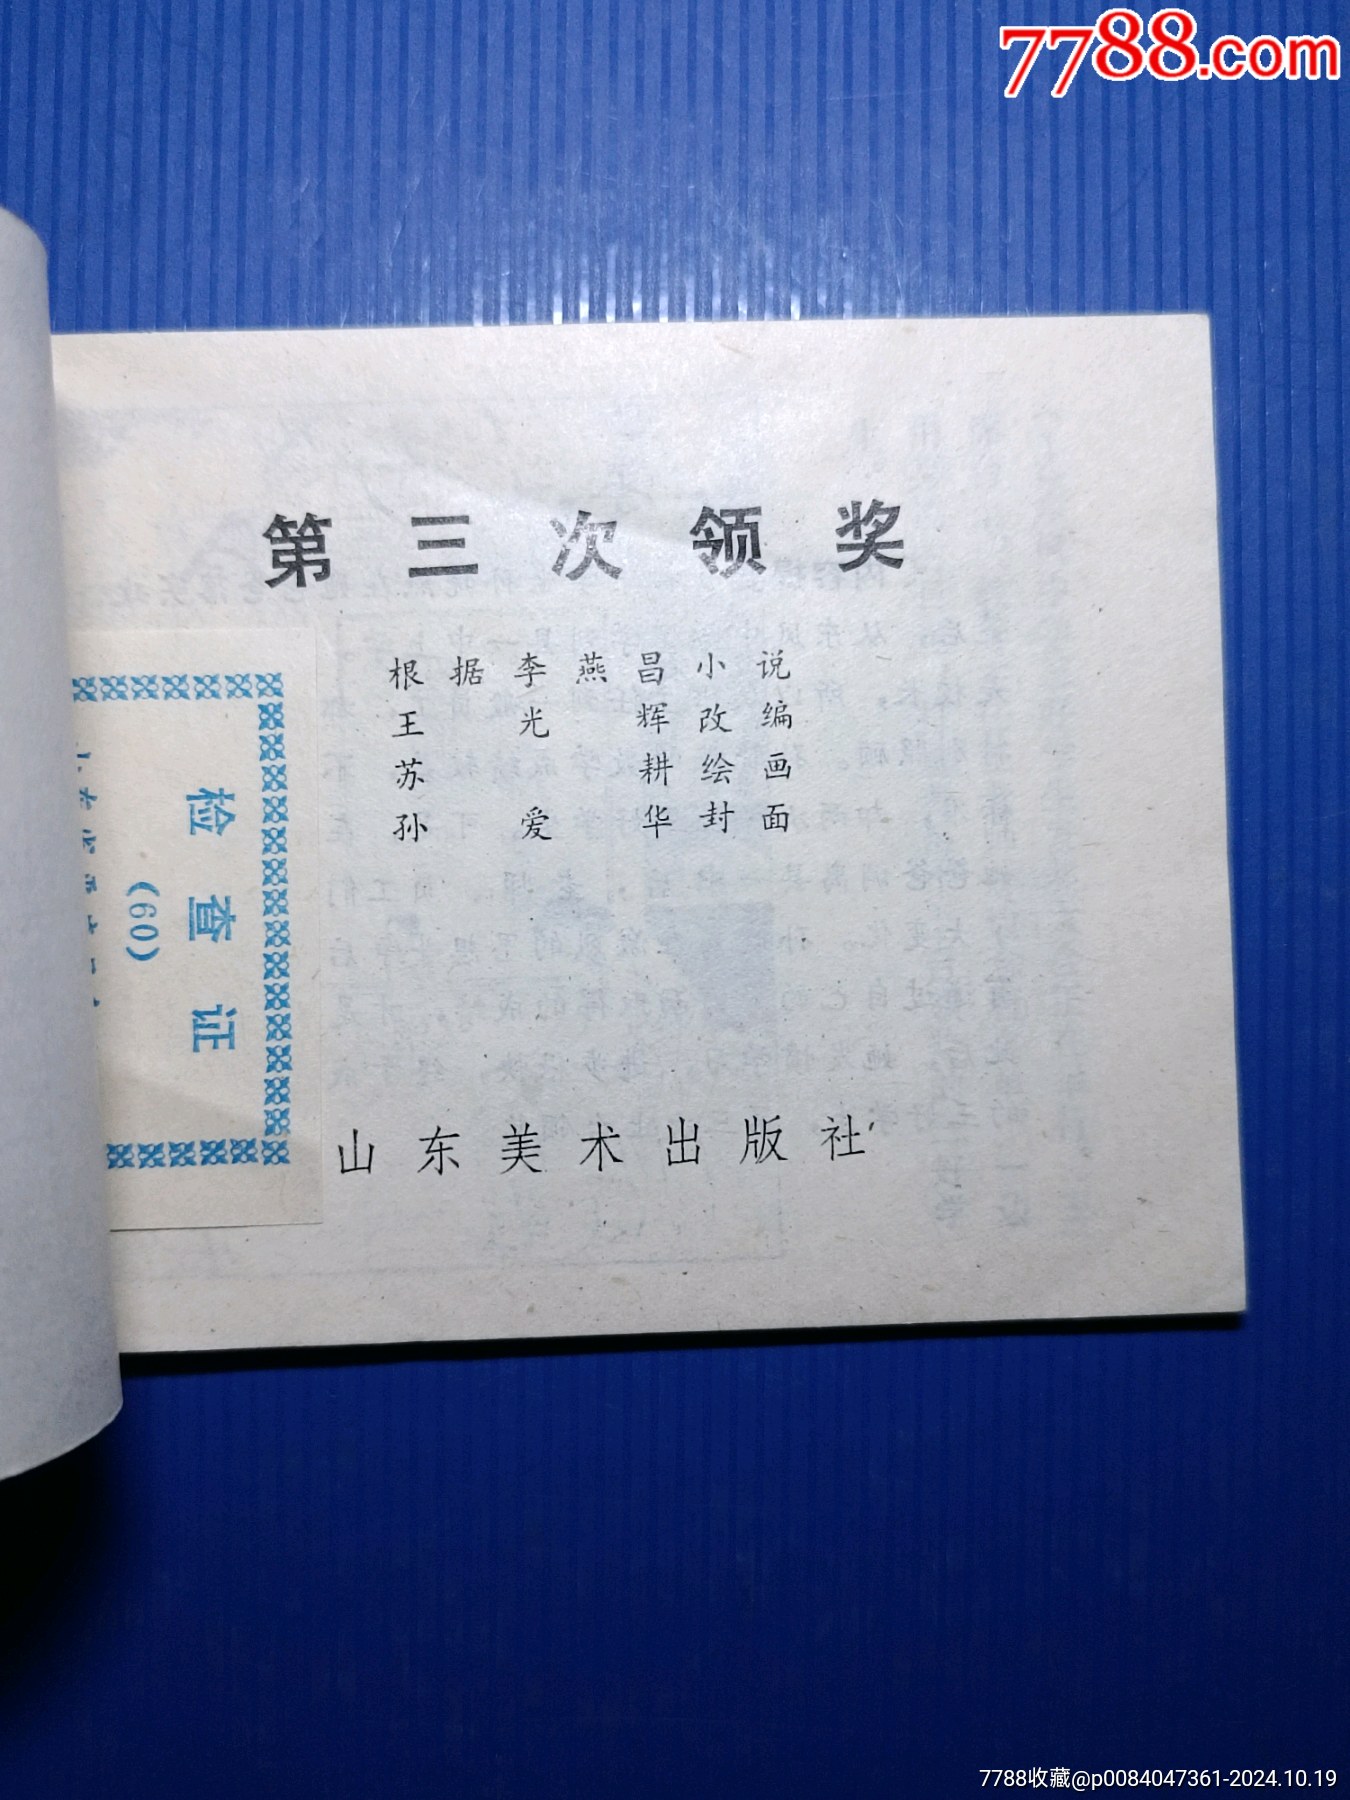 7788.com
第三次领奖
根据李燕昌小说
王光辉改编
苏耕绘画
孙爱华封面
检查证
(60)
山东美术出版社
7788收藏@p0084047361-2024.10.19